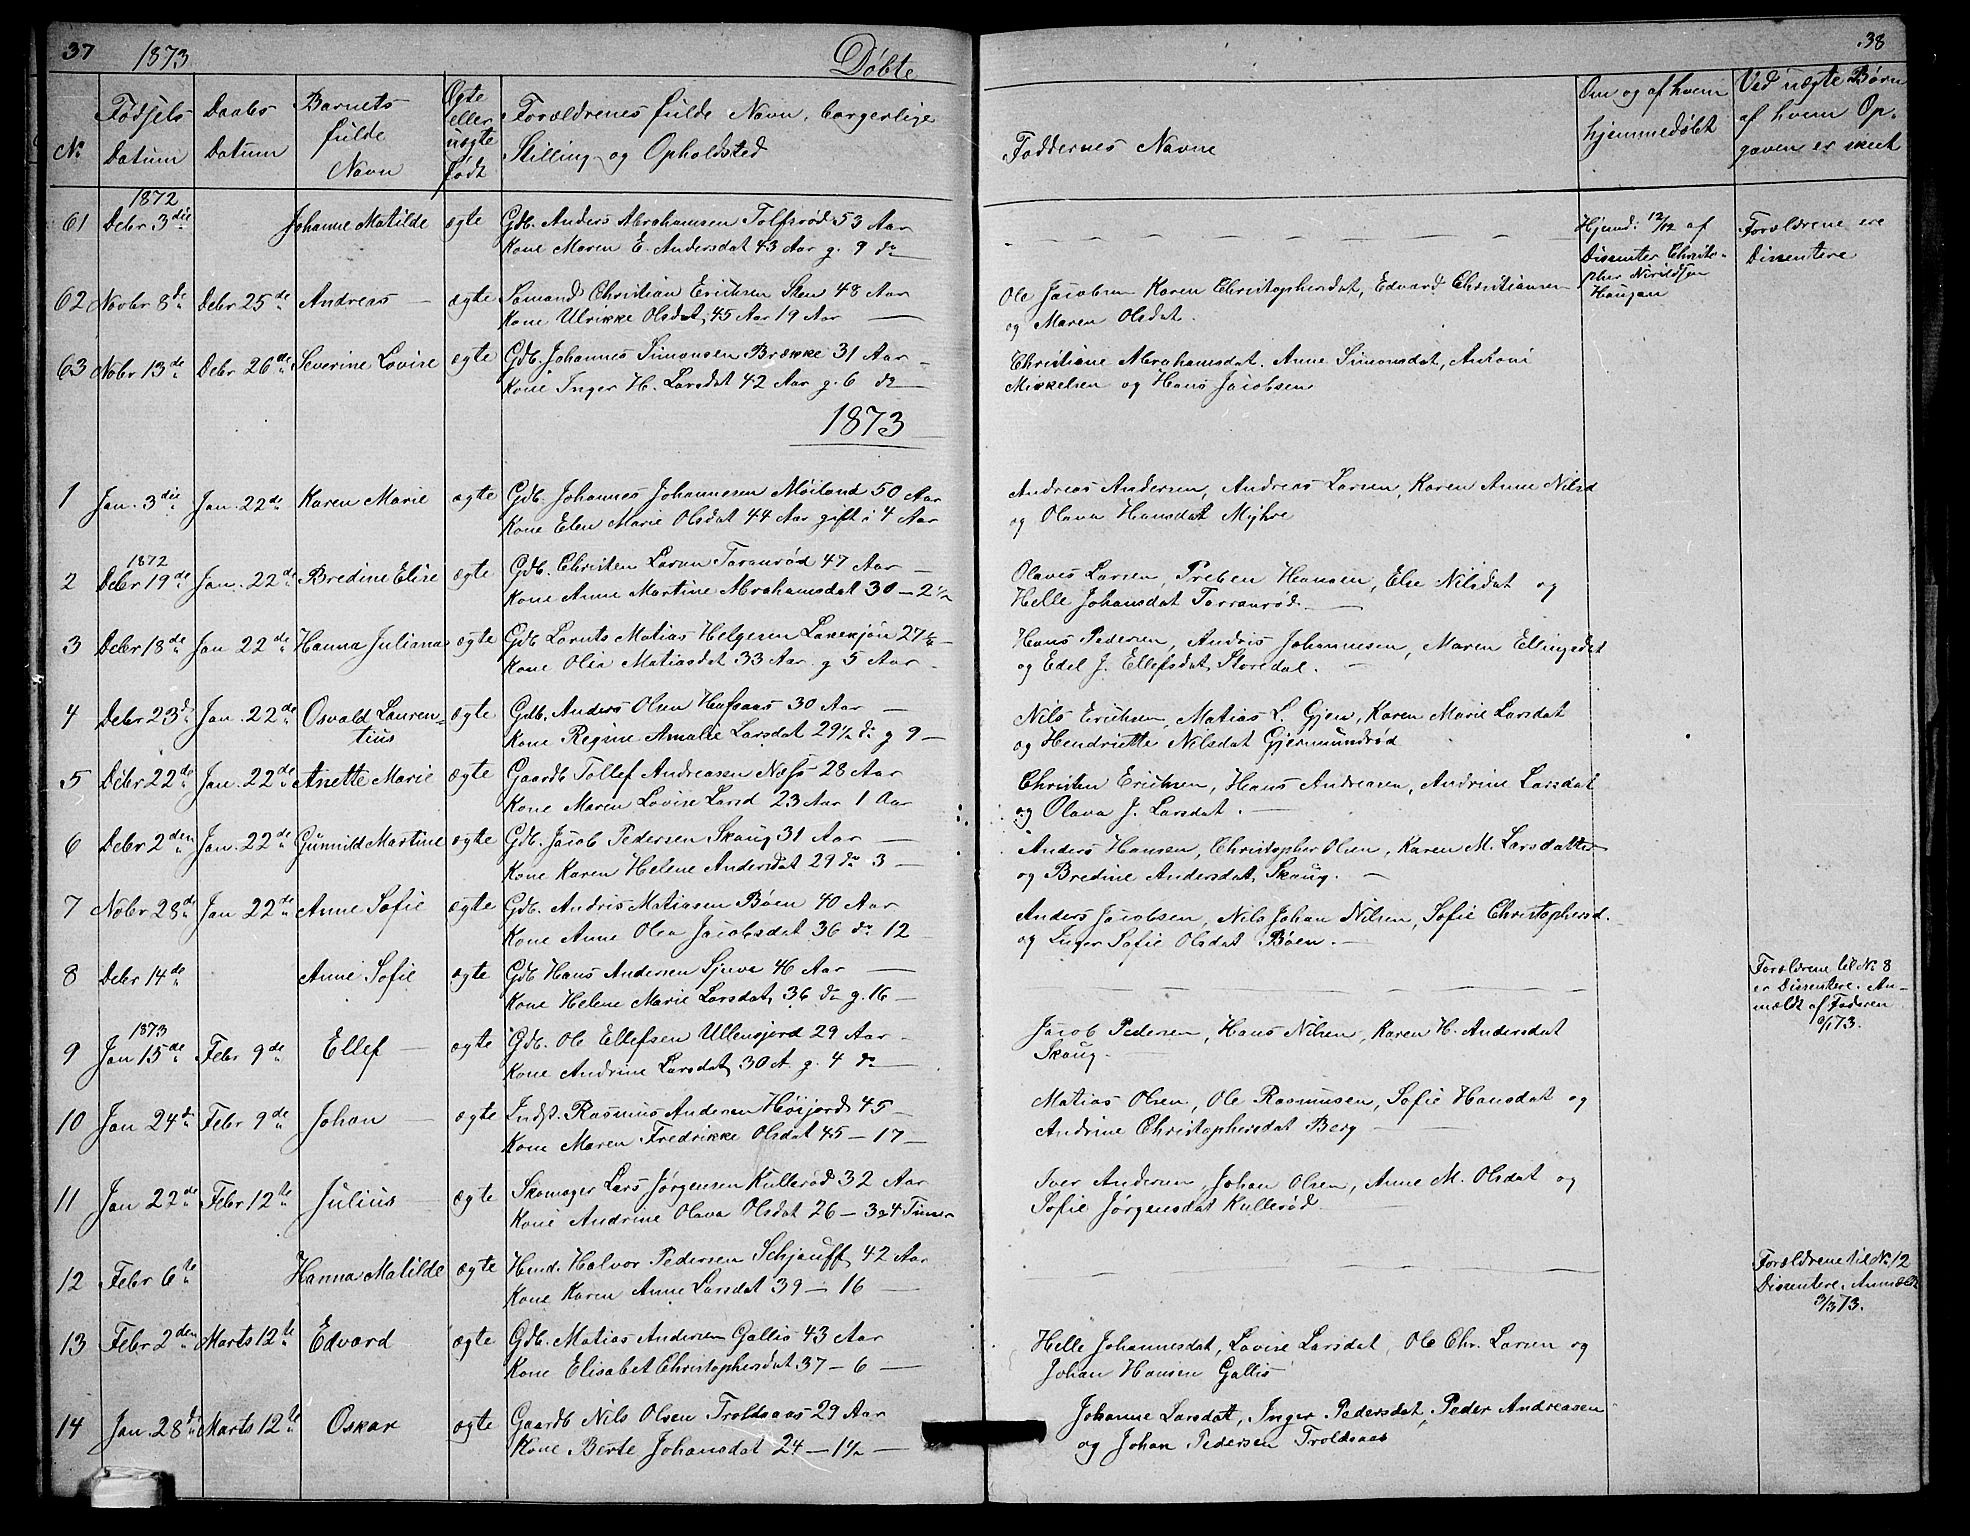 37 1873 Döbte 38
No
Fødsels
Datum
Daabs
Datum
Barnets
fulde
Navn
Ægte
eller
uægte
født
Forældrenes fulde Navn, borgerlige
Stilling og Opholdsted
Faddernes Navne
Om og af hvem
hjemmedøbt
Ved uægte Børn
af hvem Op-
gaven er skeet
1872
61 Debr 3die Johanne Matilde ægte Gdb. Anders Abrahamsen Tolfsrød 53 Aar
Kone Maren E. Andersdat 43 Aar g. 9 do
Hjemd: 12/12 af
Dissenter Christo-
pher
Haugan
Forældrene ere
Dissentere
62 Novbr 8de Debr 25de Andreas ægte Sømand Christian Erichsen Sten 48 Aar
Kone Ulrikke Olsdat 45 Aar 19 Aar
Ole Jacobsen Karen Christophersdat, Edvard Christiansen
og Maren Olsdat.
63 Nobr 13de Debr 26de Severine Lovise ægte Gdb. Johannes Simonsen Brække 31 Aar
Kone Inger H. Larsdat 42 Aar g. 6 do
Christiane Abrahamsdat. Anne Simonsdat, Antoni
Mikkelsen og Hans Jacobsen
1873
1 Jan. 3die Jan. 22de Karen Marie ægte Gdb. Johannes Johannesen Møiland 50 Aar
Kone Elen Marie Olsdat 44 Aar gift i 4 Aar
Andreas Andersen, Andreas Larsen, Karen Anne Nilsd
og Olava Hansdat Myhre
1872
2 Debr 19de Jan. 22de Bredine Elise ægte Gdb. Christen Larsen Taranrød 47 Aar
Kone Anne Martine Abrahamsdat 30 – 2½
Olaves Larsen, Preben Hansen, Else Nilsdat og
Helle Johansdat Tarranrød
3 Debr 18de Jan 22de Hanna Juliana ægte Gdb Lornts Matias Helgesen 27½
Kone Olia Matiasdat 33 Aar g 5 Aar
Hans Pedersen, Andris Johannesen, Maren Ellingsdat
og Edel J. Ellefsdat Storedal.
4 Debr 23d Jan. 22de Osvald Lauren-
tius
ægte Gdb. Anders Olsen Hafsaas 30 Aar
Kone Regine Amalie Larsdat 29½ do g 9
Nils Erichsen, Matias L. Gjen, Karen Marie Larsdat
og Hendriette Nilsdat Gjermundrød
5 Debr 22de Jan. 22de Anette Marie ægte Gaardb Tollef Andreasen Næss 28 Aar
Kone Maren Lovise Larsd 23 Aar 1 Aar
Christen Erichsen, Hans Andreasen, Andrine Larsdat
og Olava J. Larsdat.
6 Debr 2den Jan. 22de Gunnild Martine ægte Gdb. Jacob Pedersen Skaug 31 Aar
Kone Karen Helene Andersdat 29 do 3
Anders Hansen, Christopher Olsen, Karen M. Larsdatter
og Bredine Andersdat, Skaug.
7 Nobr 28d Jan 22de Anne Sofie ægte Gdb. Andris Matiasen Bøen 40 Aar
Kone Anne Olea Jacobsdat 36 do 12
Anders Jacobsen, Nils Johan Nilsen, Sofie Christophersd.
og Inger Sofie Olsdat Bøen.
8 Debr 14de Anne Sofie ægte Gdb Hans Andersen Sjuve 46 Aar
Kone Helene Marie Larsdat, 36 do g. 16
Forældrene til No 8
er Dissentere. An-
mældt af Faderen
/1 73.
1873
9 Jan 15de Febr 9de Ellef ægte Gdb. Ole Ellefsen Ullensjord 29 Aar
Kone Andrine Larsdat 30 A. g. 4 do
Jacob Pedersen, Hans Nilsen, Karen H. Andersdat
Skaug.
10 Jan 24d Febr 9de Johan ægte Indst. Rasmus Andersen Høijord 45
Kone Maren Fredrikke Olsdat 45 – 17
Matias Olsen, Ole Rasmusen, Sofie Hansdat og
Andrine Christophersdat Berg
11 Jan 22de Febr 12te Julius ægte Skomager Lars Jørgensen Kullerød 32 Aar
Kone Andrine Olava Olsdat 26 – 3
Iver Andersen, Johan Olsen, Anne M. Olsdat og
Sofie Jørgensdat Kullerød
12 Febr 6te Hanna Matilde ægte Hmd. Halvor Pedersen Schjauff 42 Aar
Kone Karen Anne Larsdat 39 – 16
Forældrene til No 12
Dissentere. Anmeldt
3/3 73.
13 Febr 2den Marts 12te Edvard ægte Gdb. Matias Andersen Gallis 43 Aar
Kone Elisabet Christophersdat 37 – 6
Helle Johannesdat, Lovise Larsdat, Ole Chr. Larsen og
Johan Hansen Gallis
14 Jan. 28de Marts 12te Oskar ægte Gaardb Nils Olsen Troldsaas 29 Aar
Kone Berte Johansdat 24 – 1½
Johanne Larsdat, Inger Pedersdat, Peder Andreasen
og Johan Pedersen Troldsaas